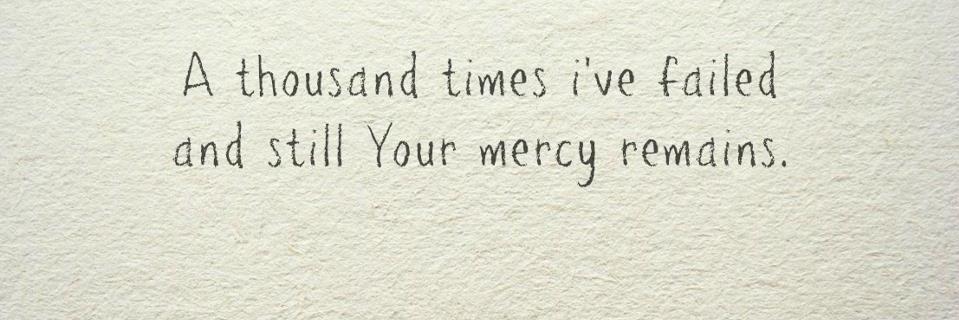 A thousand times i've failed
and still Your mercy remains.